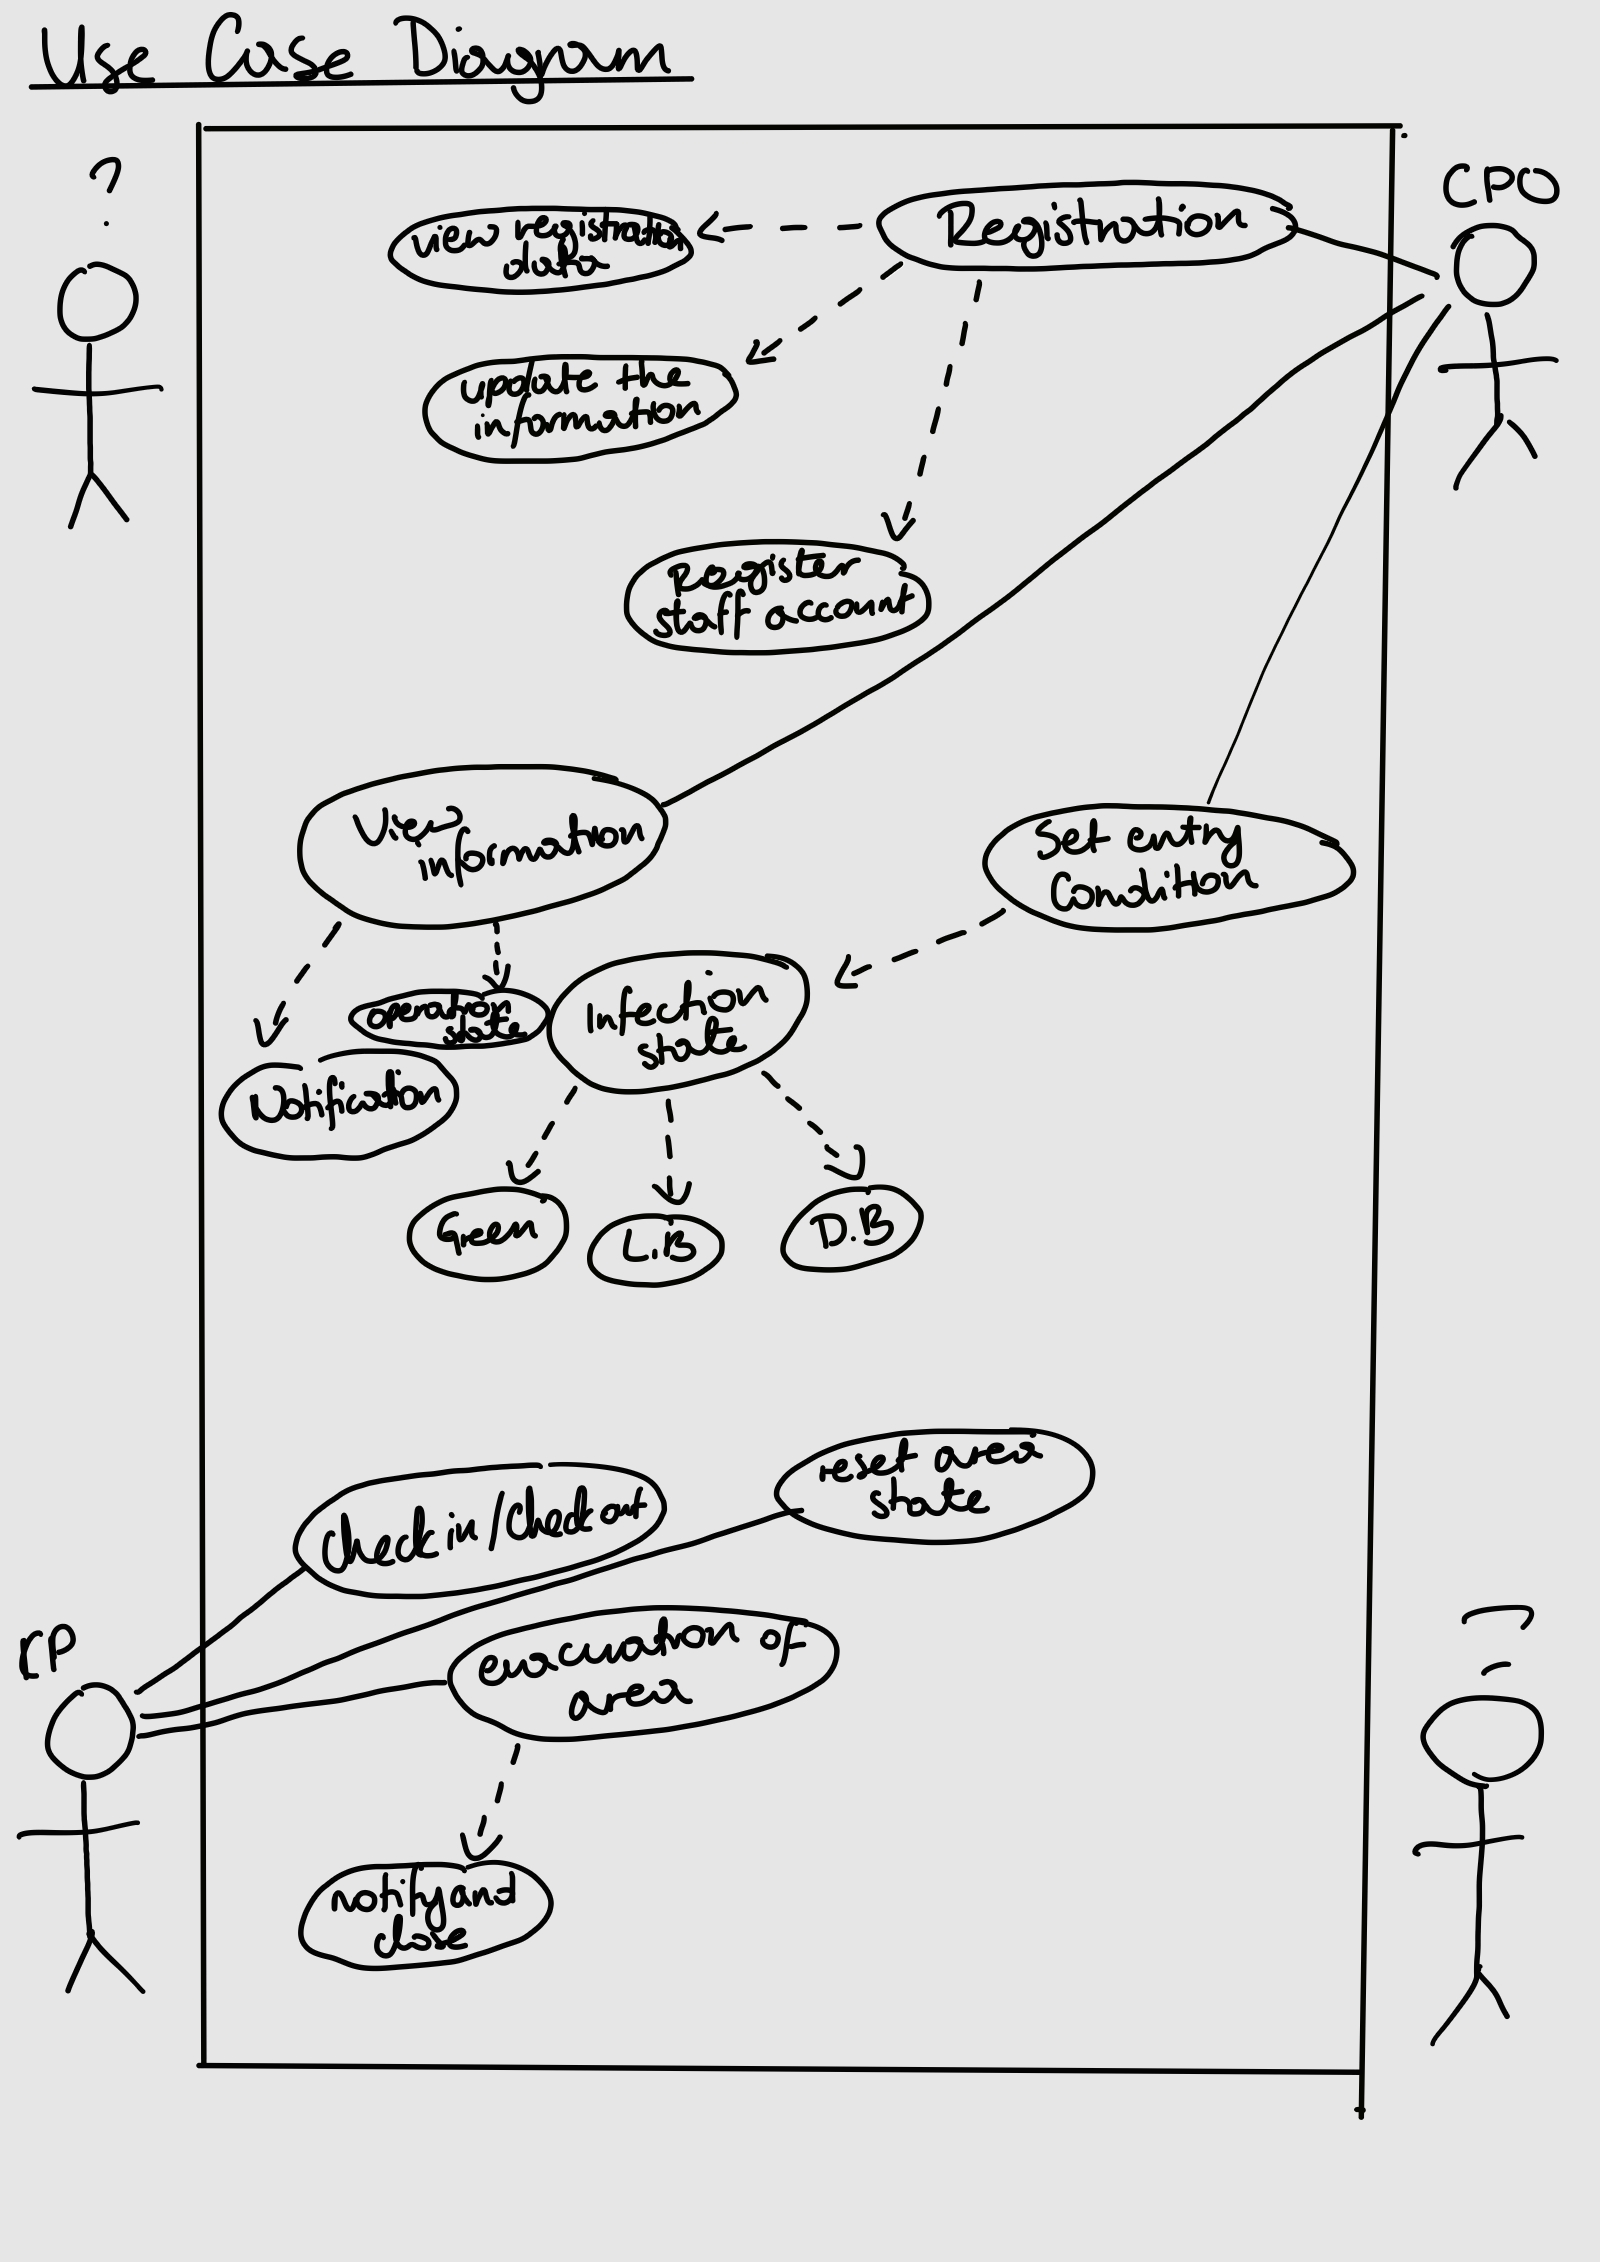 Use Case Diagram
?
CPO
Registration
view registration
data
update the
information
Register
staff account
View
information
Set entry
Condition
operation
state
Infection
state
Notification
Green
L.B
D.B
reset area
state
Check in/Check out
evacuation of
area
rP
?
notify and
close